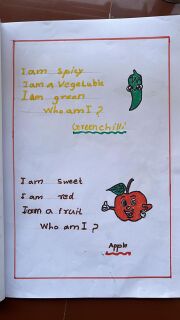 I am spicy
I am a vegetable
I am green
Who am I ?
Green chilli
I am sweet
I am red
I am a fruit
Who am I ?
Apple